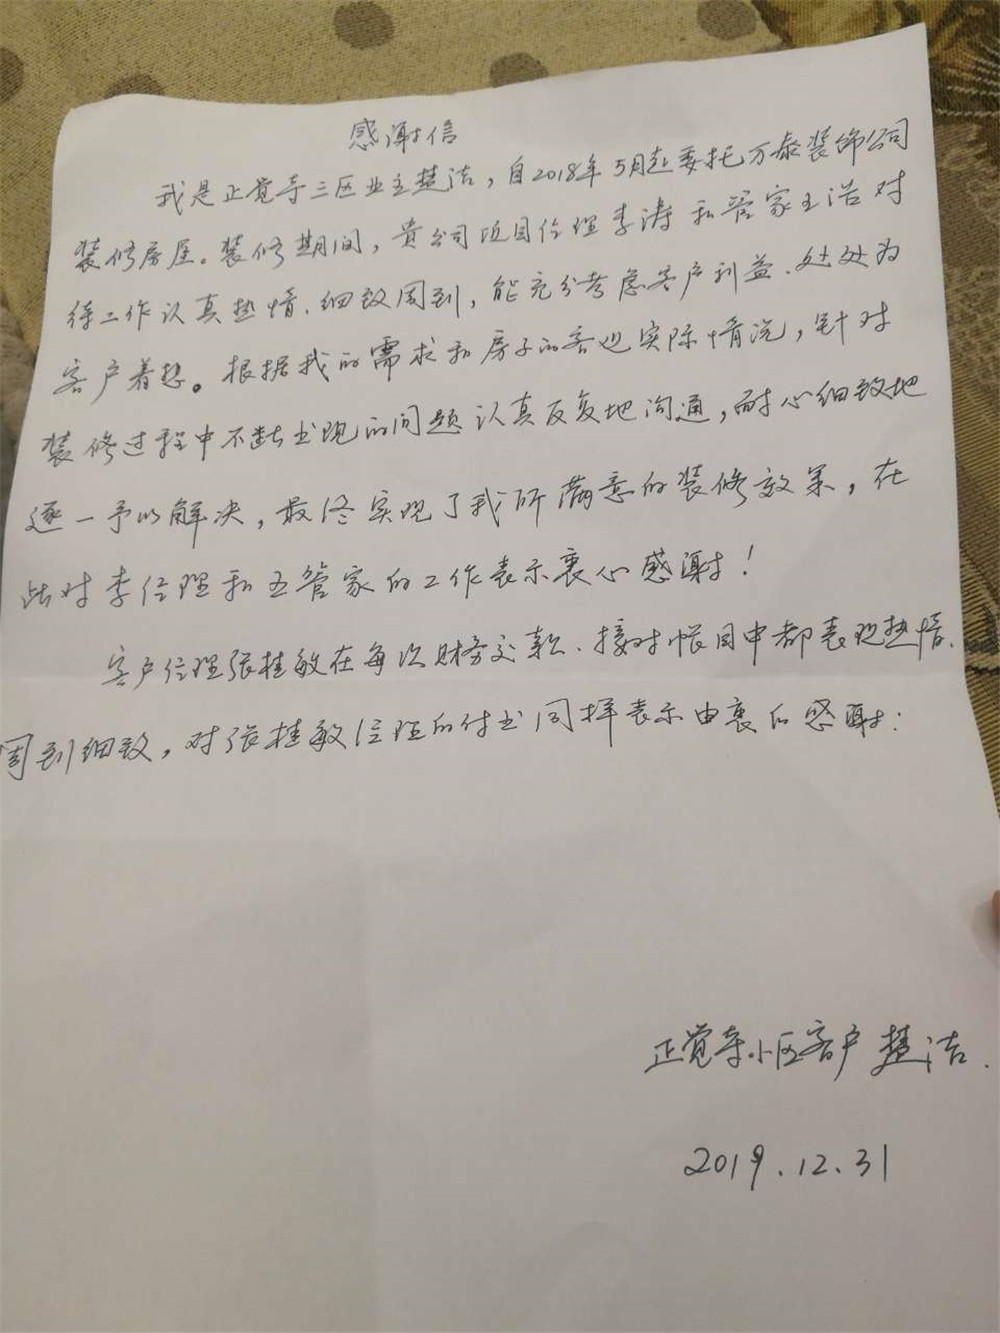 感谢信
我是正觉寺三区业主楚洁，自2018年5月起委托万泰装饰公司
装修房屋。装修期间，贵公司项目经理李涛和管家王浩对
待工作认真热情、细致周到，能充分考虑客户利益、处处为
客户着想。根据我的需求和房子的客也实际情况，针对
装修过程中不断出现的问题认真反复地沟通，耐心细致地
逐一予以解决，最终实现了我所满意的装修效果，在
此对李经理和王管家的工作表示衷心感谢！
客户经理张桂敏在每次财务交款、接对帐目中都表现热情、
周到细致，对张桂敏经理的付出同样表示由衷的感谢！
正觉寺小区客户 楚洁.
2019.12.31